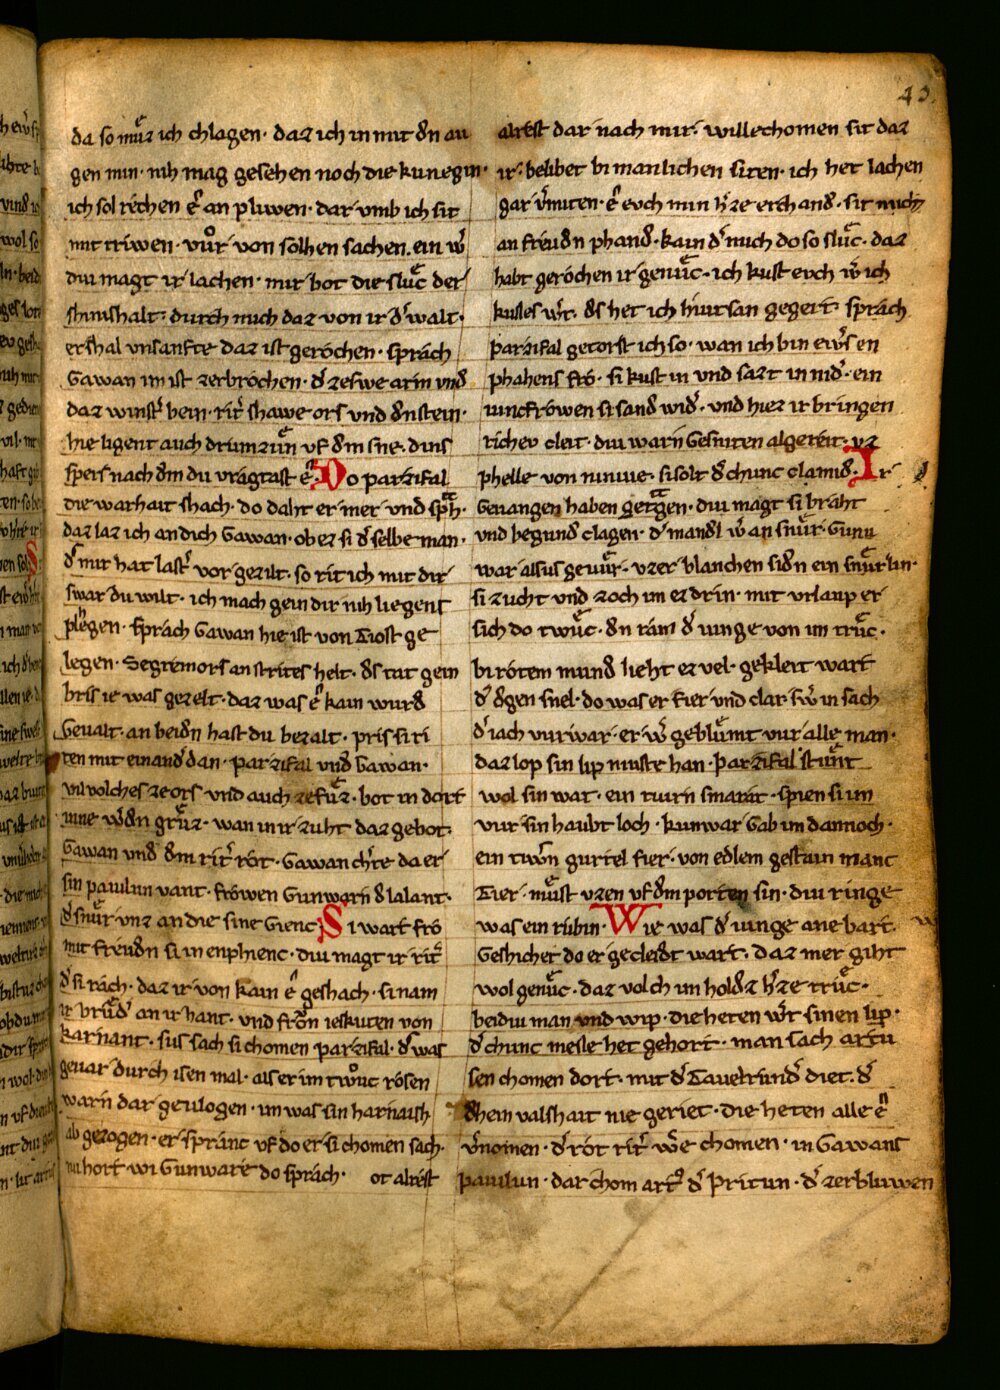 43.
da so muͤz ich chlagen· daz ich in mit dͤn au
gen min· niht mag gesehen noch die kunegin·
ich sol rechen eͤ an pluwen· dar vmb ich sit
mit triwen· vuͦr von solhen sachen· ein wͤ
diu magt ir lachen· mir bot die sluͤc der
shinishalt· durch mich daz von ir dͤ walt·
er shal vnsanfte daz ist gerochen· sprach
Gawan im ist zerbrochen· dͤ zeswe arm vnd
daz winstͤ bein· ritͤ shawe ors vnd dͤn stein·
hie ligent auch drumzuͤn vf dͤm sne· dins
spers nach dͤm du vragtast eͤ· Do parzifal
die warhait shach· do daht er mer vnd sprach·
daz laz ich an dich Gawan· ob ez si dͤ selbe man·
dͤ mir hat lastͤ vor gezilt· so rit ich mit dir
swar du wilt· ich mach gein dir niht liegens
phlegen· sprach Gawan hie ist von Tiost ge
legen· Segremors an strites helt· dͤs tat gein
bris ie was gezelt· daz was eͤ kain wurd
Gevalt· an beidͤn hast du bezalt· pris si ri
ten mit einandͤ dan· parzifal vnd Gawan·
vil volches ze ors vnd auch ze fuͤz· bot in dort
inne wͤdͤn gruͤz· wan in ir zuht daz gebot·
Gawan vnd dͤm ritͤ rot· Gawan chͤte da er
sin paulun vant· frowen Gunwarn dͤ lalant·
dͤ snuͤr vnz an die sine Gienc Si wart fro
mit freudͤn si in enphienc· diu magt ir ritͤ
dͤ si rach· daz ir von kain eͤ geshach· si nam
ir bruͤdͤ an ir hant· vnd fron ieskuten von
karnant· sus sach si chomen parzifal· dͤ was
gevar durch isen mal· als er im twuͦc rosen
warn dar gevlogen· im was sin harnaish
ab gezogen· er spranc vf do er si chomen sach·
nu hort wi Gunware do sprach· ot alrest
alrest dar nach mir· willechomen sit daz
ir· belibet bi manlichen siten· ich het lachen
gar vͤmiten· eͤ evch min hͤze erchand· sit mich
an freudͤn phand· kain dͤ mich do so sluͤc· daz
habt gerochen ir genuͤc· ich kust evch wͤ ich
kusses wͤt· dͤs het ich hiut san gegert· sprach
parzifal getorst ich so· wan ich bin ewͤs en
phahens fro· si kust in vnd sazt in nidͤ· ein
iuncfrowen si sand widͤ· vnd hiez ir bringen
richev cleit· diu warn Gesniten al gereit· vz
phelle von niniue· si solt dͤ chunc clamidͤ· Ir
Gevangen haben getragen· diu magt si braht
vnd begund clagen· dͤ mandͤl wͤ an snuͤr· Gunn
war alsus gevuͤr· vzer blanchen sidͤn ein snuͤrlin·
si zucht vnd zoch im ez drin· mit vrlaup er
sich do twuͤc· dͤn ram dͤ iunge von im truͤc·
bi rotem mund lieht er vel· geklert wart
dͤ dͤgen snel· do was er fier vnd clar· swͤ in sach
dͤ iach vurwar· er wͤ gebluͤmt vur alle man·
daz lop sin lip muste han· Parzifal stuͤnt
wol sin wat· ein tiurn smarat· spien si im
vur sin haubt loch· kunwar Gab im dannoch·
ein twͤn gurtel fier· von edͤlem gestain manc
Tier· muͤst vzen vf dͤm porten sin· diu ringe
was ein rubin· Wie was dͤ iunge ane bart·
Geshichet do er gecleidt wart· daz mer giht
wol genuͤc· daz volch im holdͤz hͤze truͤc·
beidiu man vnd wip· die heten wͤt sinen lip·
dͤ chunc messe het gehort· man sach artu
sen chomen dort· mit dͤ Tauelrundͤ diet· dͤ
dͤhein valshait nie geriet· die heten alle eͤ
vͤnomen· dͤ rot ritͤ wͤe chomen· in Gawans
paulun· dar chom artus dͤ Pritun· dͤ zerbluwen